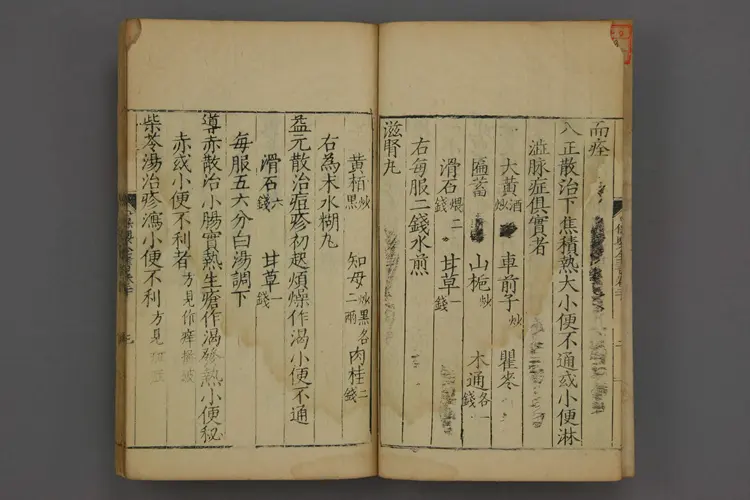 而痊
八正散治下焦積熱大小便不通或小便淋
澁脉症俱實者
大黃酒炒 車前子炒 瞿麥
萹蓄 山梔炒 木通各一錢
滑石煨二錢 甘草一錢
右每服二錢水煎
滋腎丸
黃栢炒黑 知母炒黑各二兩 肉桂二錢
右為末水糊丸
益元散治痘疹初起煩燥作渴小便不通
滑石六錢 甘草一錢
每服五六分白湯調下
導赤散治小腸實熱生瘡作渴發熱小便秘
赤或小便不利者方見作癢
柴苓湯治疹瀉小便不利方見